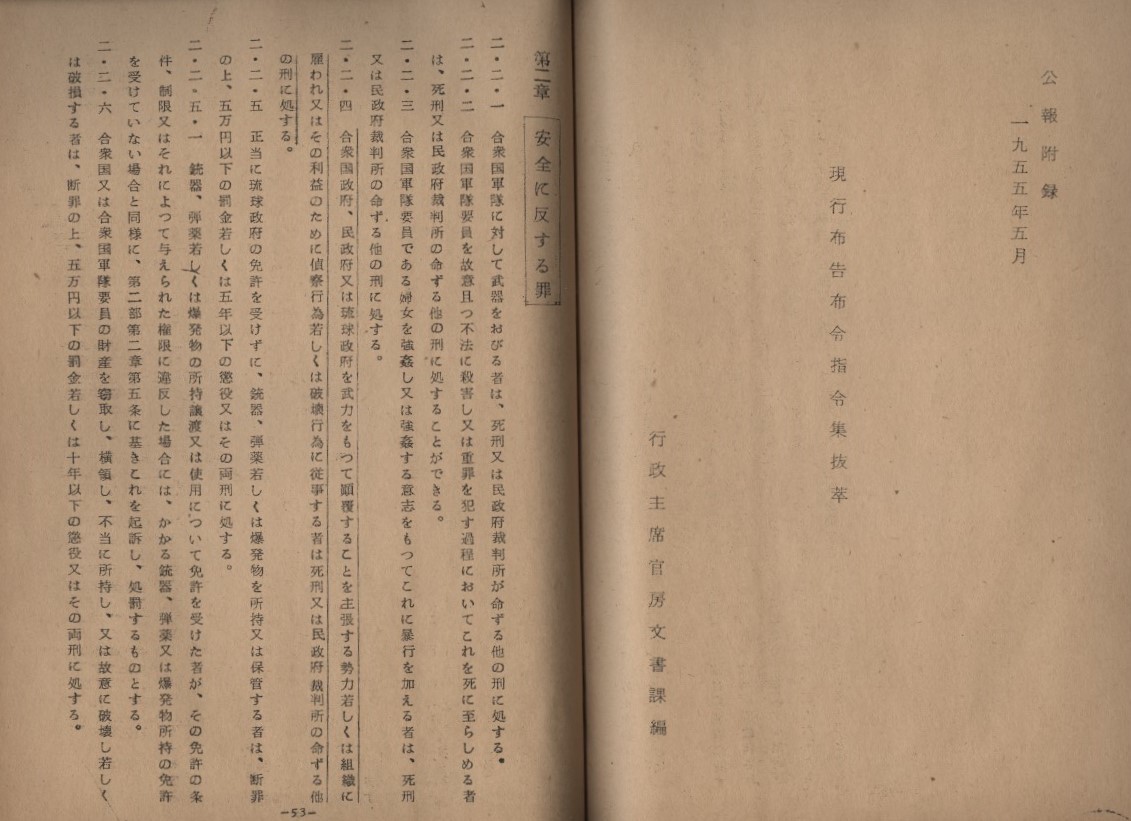 公報附録
一九五五年五月
現行布告布令指令集抜萃
行政主席官房文書課編
第二章 安全に反する罪
二・二・一 合衆国軍隊に対して武器をおびる者は、死刑又は民政府裁判所が命ずる他の刑に処する。
二・二・二 合衆国軍隊要員を故意且つ不法に殺害し又は重罪を犯す過程においてこれを死に至らしめる者
は、死刑又は民政府裁判所の命ずる他の刑に処することができる。
二・二・三 合衆国軍隊要員である婦女を強姦し又は強姦する意志をもつてこれに暴行を加える者は、死刑
又は民政府裁判所の命ずる他の刑に処する。
二・二・四 合衆国政府、民政府又は琉球政府を武力をもつて顛覆することを主張する勢力若しくは組織に
雇われ又はその利益のために偵察行為若しくは破壊行為に従事する者は死刑又は民政府裁判所の命ずる他
の刑に処する。
二・二・五 正当に琉球政府の免許を受けずに、銃器、弾薬若しくは爆発物を所持又は保管する者は、断罪
の上、五万円以下の罰金若しくは五年以下の懲役又はその両刑に処する。
二・二・五・一 銃器、弾薬若しくは爆発物の所持譲渡又は使用について免許を受けた者が、その免許の条
件、制限又はそれによつて与えられた権限に違反した場合には、かかる銃器、弾薬又は爆発物所持の免許
を受けていない場合と同様に、第二部第二章第五条に基きこれを起訴し、処罰するものとする。
二・二・六 合衆国又は合衆国軍隊要員の財産を窃取し、横領し、不当に所持し、又は故意に破壊し若しく
は破損する者は、断罪の上、五万円以下の罰金若しくは十年以下の懲役又はその両刑に処する。
—53—